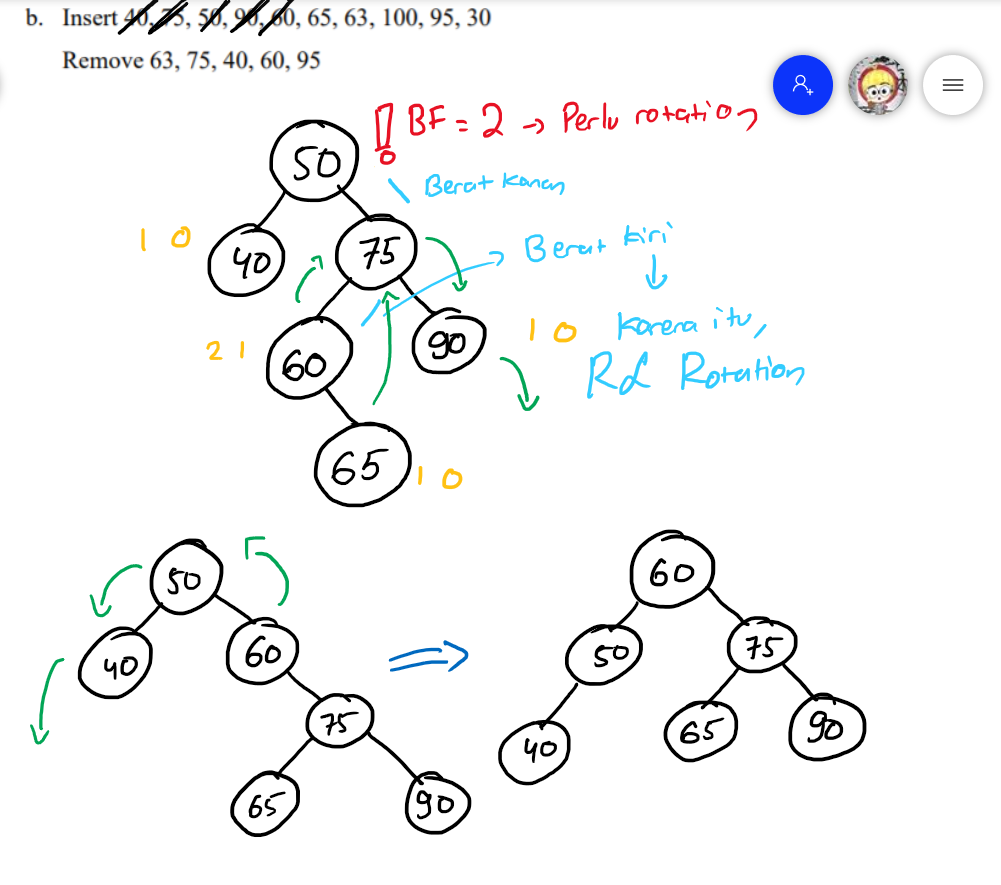 b. Insert 40, 75, 50, 90, 60, 65, 63, 100, 95, 30
Remove 63, 75, 40, 60, 95
! BF = 2 → Perlu rotation
50
Berat kanan
1 0
40
75
Berat kiri
2 1
60
90
1 0
Karena itu,
RL Rotation
65
1 0
50
40
60
75
65
90
60
50
75
40
65
90